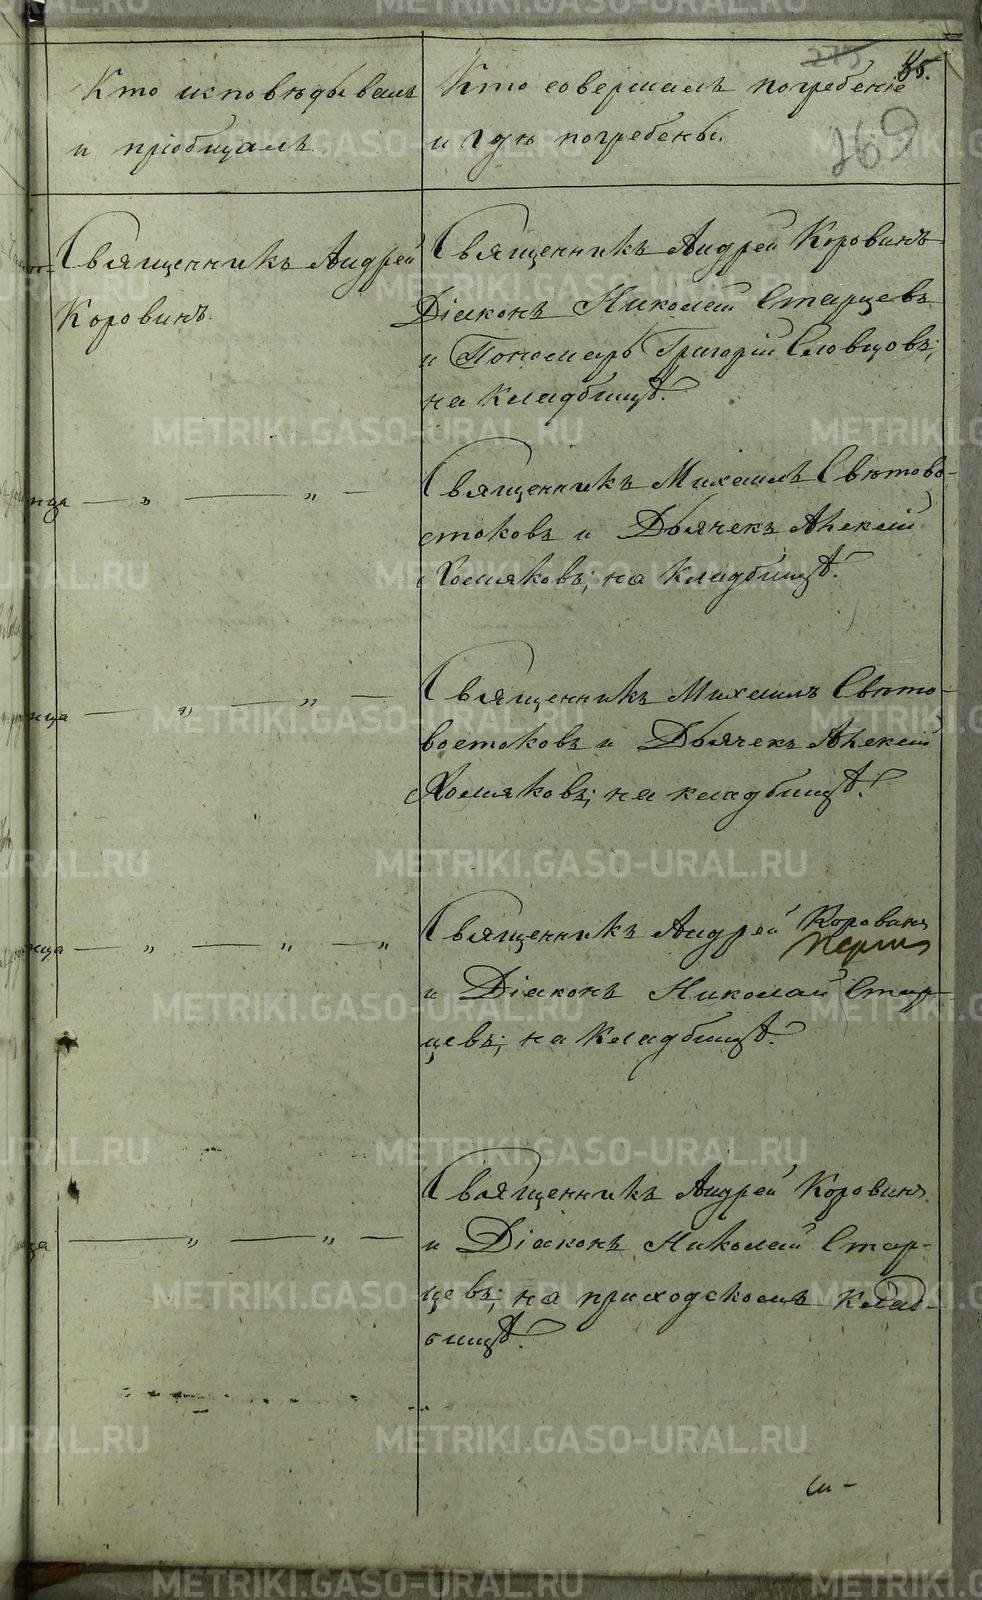 275
85.
269
Кто исповѣдывалъ
и пріобщалъ
Кто совершалъ погребеніе
и гдѣ погребены.
Священникъ Андрей
Коровинъ.
Священникъ Андрей Коровинъ
Діаконъ Николай Старцевъ
и Пономарь Григорій Словцовъ;
на кладбищѣ.
нца — „ — „ —
Священникъ Михаилъ Свѣтово-
стоковъ и Дьячекъ Алексѣй
Хомяковъ; на кладбищѣ.
нца — „ — „ —
Священникъ Михаилъ Свѣто-
востоковъ и Дьячекъ Алексѣй
Хомяковъ; на кладбищѣ.
нца — „ — „ — „
Священникъ Андрей Коровинъ
и Діаконъ Николай Стар-
цевъ; на кладбищѣ.
нца — „ — „ —
Священникъ Андрей Коровинъ
и Діаконъ Николай Стар-
цевъ; на приходскомъ клад-
бищѣ.
METRIKI.GASO-URAL.RU